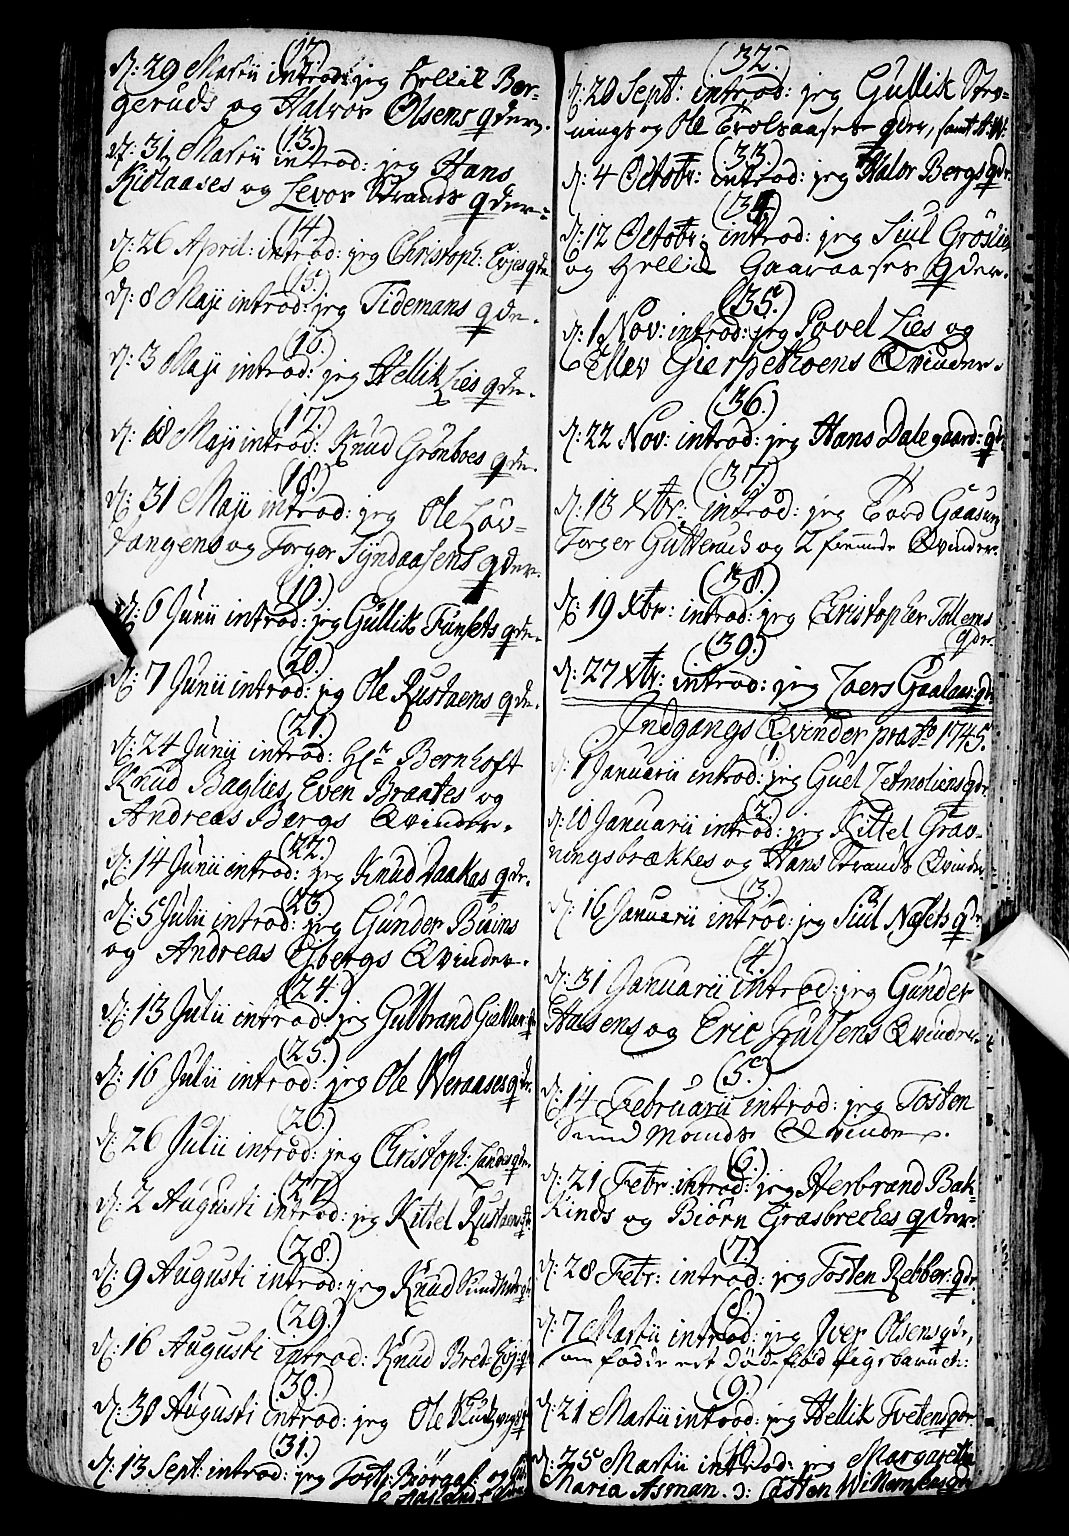 (12.)
d: 29 Martii introd: jeg Hellik Bør-
geruds og Halvor Olsens qder.
(13.)
d: 31 Martii introd: jeg Hans
Kiölaases og Levor Strands qder.
(14.)
d: 26 April: introd: jeg Christoph: Evjes qde
(15.)
d: 8 Maji introd: jeg Tidemans qde.
(16.)
d: 3 Maji introd: jeg Hellik Lies qde.
(17.)
d: 18 Maji introd: Knud Grönboes qde.
(18.)
d: 31 Maji introd: jeg Ole Löv-
tangens og Torger Tyndaasens qder.
(19.)
d: 6 Junii introd: jeg Gullik Funsets qde.
(20.)
d: 7 Junii introd: jeg Ole Rustaens qde.
(21.)
d: 24 Junii introd: Hr Bernhoft
Knud Baglies, Even Braates og
Andreas Bergs Qvinder.
(22.)
d: 14 Junii introd: jeg Knud Daakas qde.
(23.)
d: 5 Julii introd: jeg Gunder Buins
og Andreas Esbergs Qvinder.
(24.)
d: 13 Julii introd: jeg Gulbrand
(25.)
d: 16 Julii introd: jeg Ole Weraases qde.
(26.)
d: 26 Julii introd: jeg Christoph: Landes qde.
(27.)
d: 2 Augusti introd: jeg Kittel Rustaens
(28.)
d: 9 Augusti introd: jeg Knud
(29.)
d: 16 Augusti introd: Knud Bred-
(30.)
d: 30 Augusti introd: jeg Ole
(31.)
d: 13 Sept: introd: jeg og
(32.)
d: 20 Sept: introd: jeg Gullik
nings og Ole Troldaases qder,
(33.)
d: 4 Octobr: introd: jeg Halvor Bergs qde.
(34.)
d: 12 Octobr: introd: jeg Siul Gröslie
og Hellik Gaaraases qder.
(35.)
d: 1 Nov: introd: jeg Povel Lies og
Ellev Gierpetroens Qvinder.
(36.)
d: 22 Nov: introd: jeg Hans Dalegaard: qde
(37.)
d: 13 Xbr: introd: jeg Tord
Torger Gutteruds og 2 fremmede Qvinder.
(38.)
d: 19 Xbr: introd: jeg Christopher Tollems
qde.
(39.)
d: 27 Xbr: introd: jeg Joers Gaalaas: qde
Indgangs Qvinder pro Ao 1745.
(1.)
d: 1 Januarii introd: jeg qde.
(2.)
d: 10 Januarii introd: jeg Kittel Grav-
ningsbrækkes og Hans Strands Qvinder
(3.)
d: 16 Januarii introd: jeg Siul Næsets qde
(4.)
d: 31 Januarii introd: jeg Gunder
og Eric Qvinder.
(5.)
d: 14 Februarii introd: jeg Tosten
Sund Moends Qvinde.
(6.)
d: 21 Febr: introd: jeg Herbrand Bak-
kinds og Biörn Græsbrekkes qder.
(7.)
d: 28 Febr: introd: jeg Tosten Rebber: qde
(8.)
d: 7 Martii introd: jeg Iver Olsens qde,
om födde et dödfød Pigebarn
(9.)
d: 21 Martii introd: jeg Hellik Tvetens qde.
(10.)
d: 25 Martii introd: jeg Margarethe
Maria Asman. o: Carsten Willumsens qde